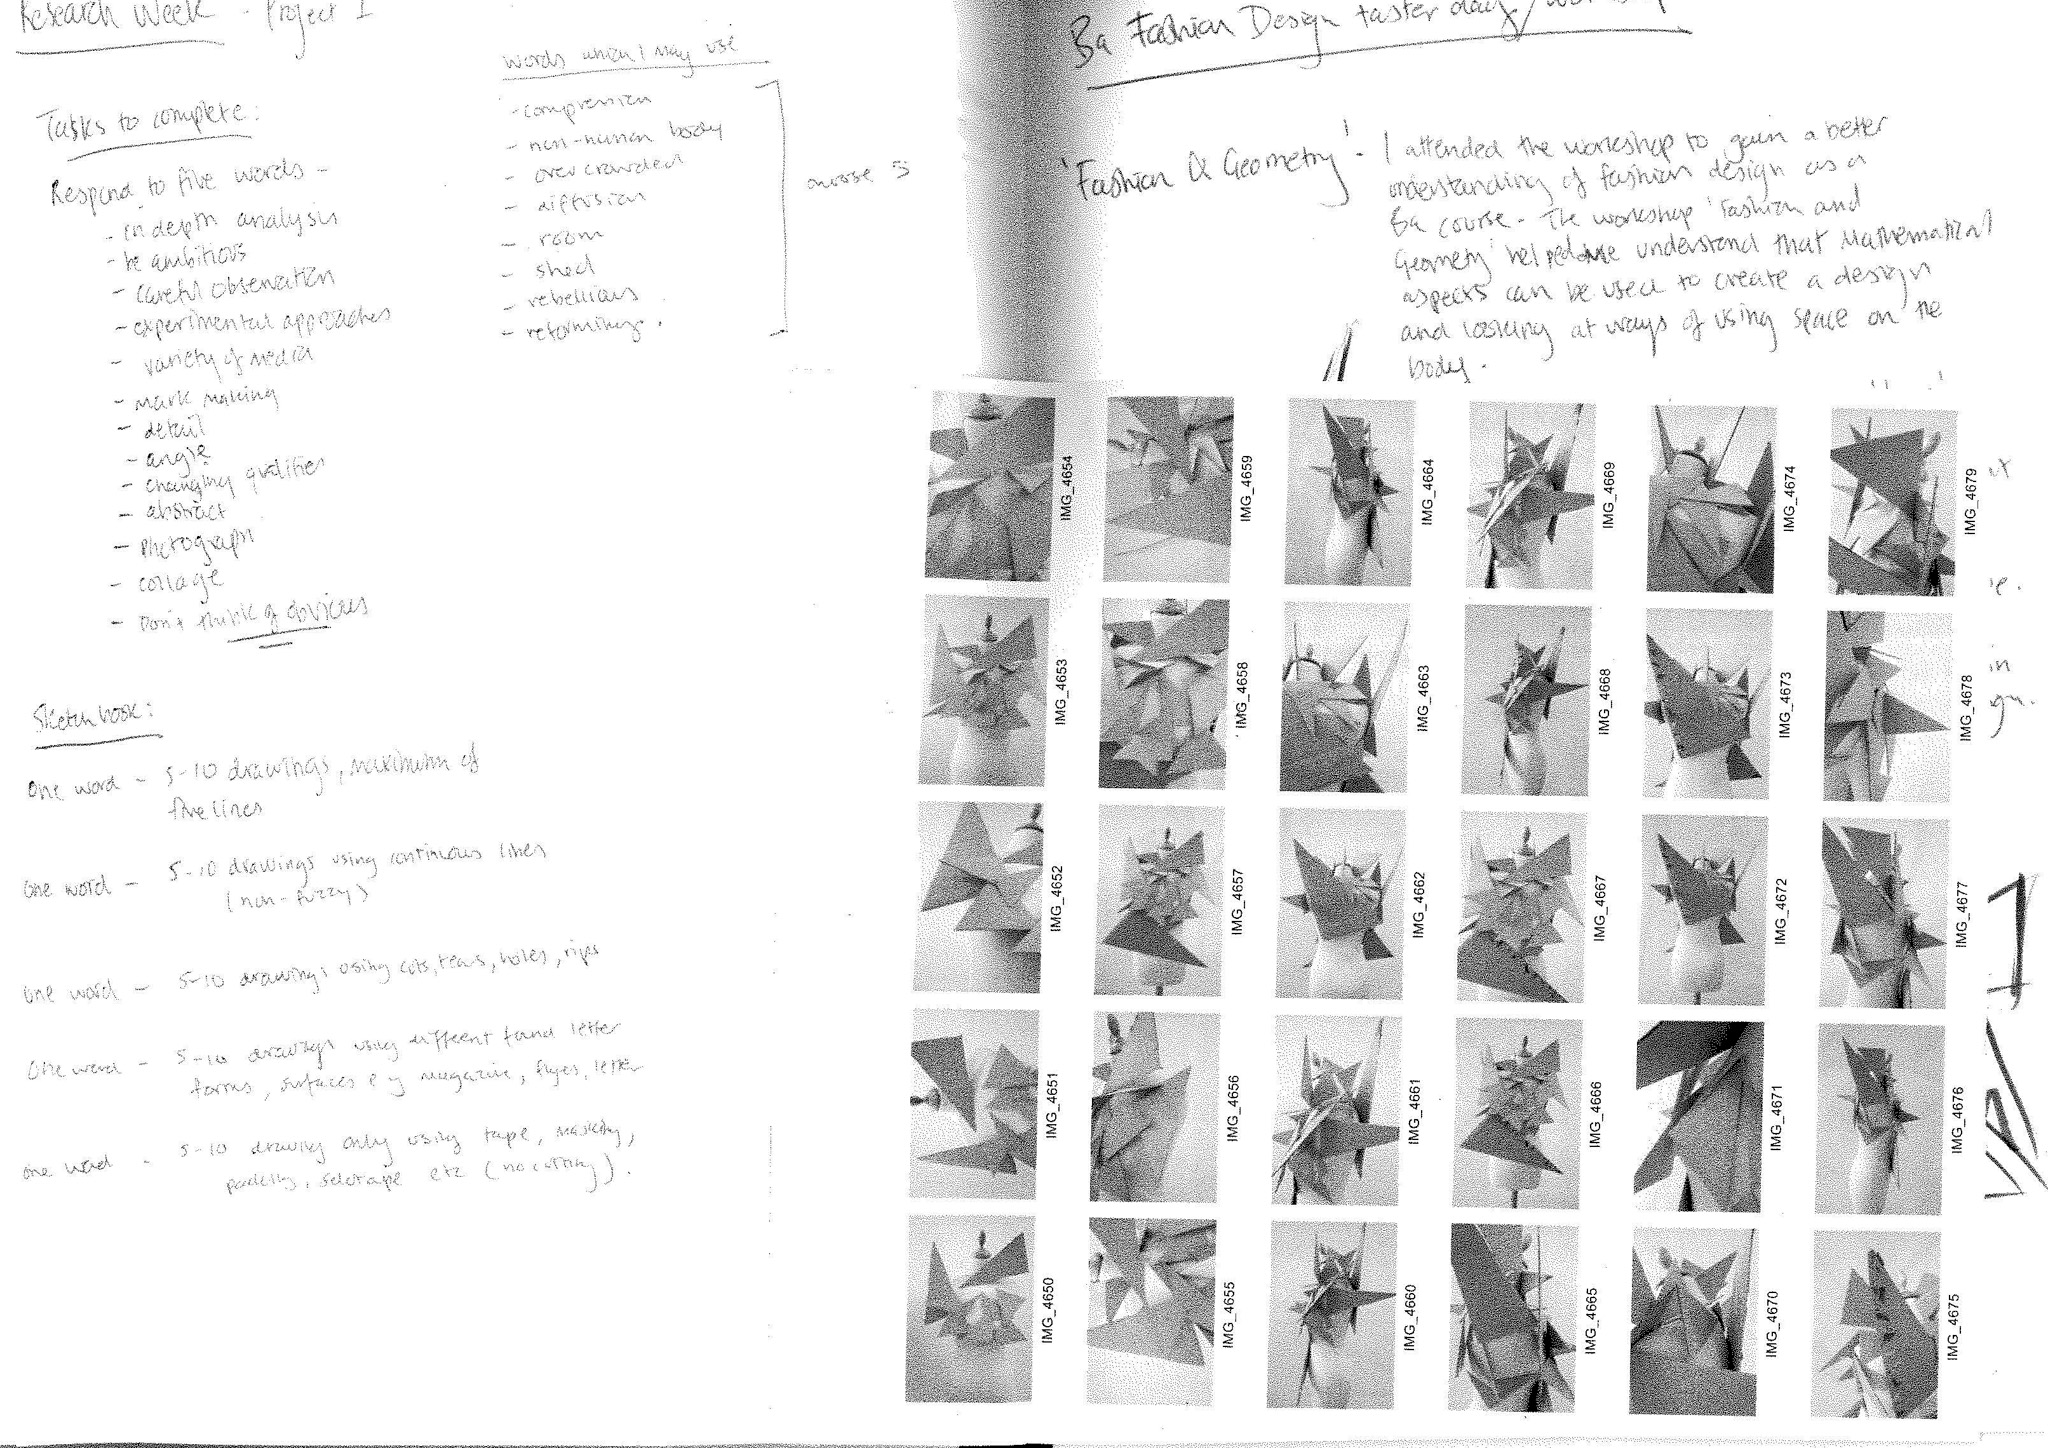 Research Week - Project 1
Tasks to complete:
Respond to five words -
- in depth analysis
- be ambitious
- careful observation
- experimental approaches
- variety of media
- mark making
- detail
- angle
- changing qualities
- abstract
- photograph
- collage
- Don't think of obvious
words which I may use
- compression
- non-human body
- over crowded
- diffusion
- room
- shed
- rebellious
- reforming.
choose 5
Sketchbook:
One word - 5-10 drawings, maximum of
five lines
One word - 5-10 drawings using continuous lines
(non-fuzzy)
One word - 5-10 drawings using cuts, tears, holes, rips
One word - 5-10 drawings using different found letter
forms, surfaces e g magazine, flyes, letter
One word - 5-10 drawing only using tape, masking,
parcel, selotape etc (no cutting).
Ba Fashion Design taster day/workshop
'Fashion & Geometry' - I attended the workshop to gain a better
understanding of fashion design as a
Ba course - The workshop 'Fashion and
Geometry' helped me understand that Mathematical
aspects can be used to create a design
and looking at ways of using space on the
body.
IMG_4654
IMG_4659
IMG_4664
IMG_4669
IMG_4674
IMG_4679
IMG_4653
IMG_4658
IMG_4663
IMG_4668
IMG_4673
IMG_4678
IMG_4652
IMG_4657
IMG_4662
IMG_4667
IMG_4672
IMG_4677
IMG_4651
IMG_4656
IMG_4661
IMG_4666
IMG_4671
IMG_4676
IMG_4650
IMG_4655
IMG_4660
IMG_4665
IMG_4670
IMG_4675